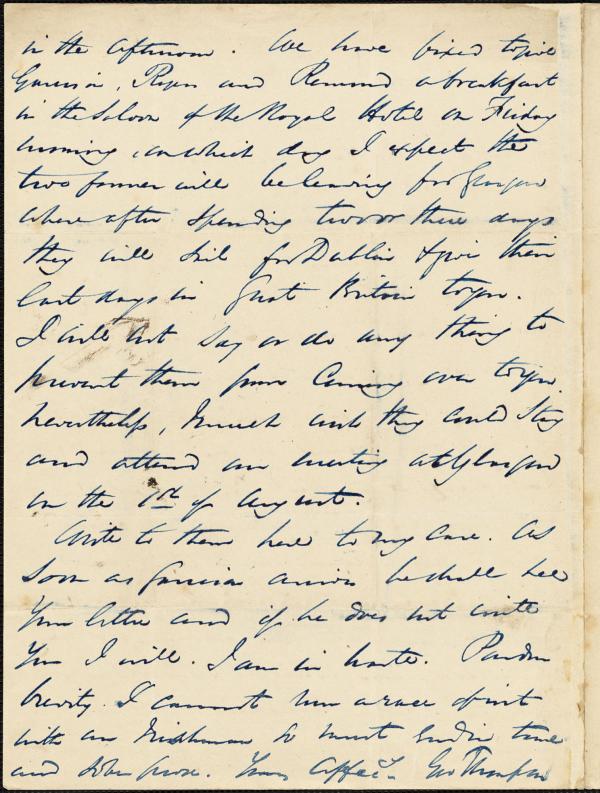 in the afternoon. We have fixed to give
Garrison, Rogers and Remond a breakfast
in the Saloon of the Royal Hotel on Friday
morning, on which day I expect the
two former will be leaving for Glasgow
where after spending two or three days
they will sail for Dublin & give their
last days in Great Britain to you.
I will not say or do any thing to
prevent them from coming over to you.
nevertheless, I much wish they could stay
and attend our meeting at Glasgow
on the 1st of August.
Write to them here to my care. As
soon as Garrison arrives he shall see
your letter and if he does not write
you I will. I am in haste. Pardon
brevity. I cannot run a race of wit
with an Irishman so must end in time
and sober prose. Yours affecty. Geo Thompson